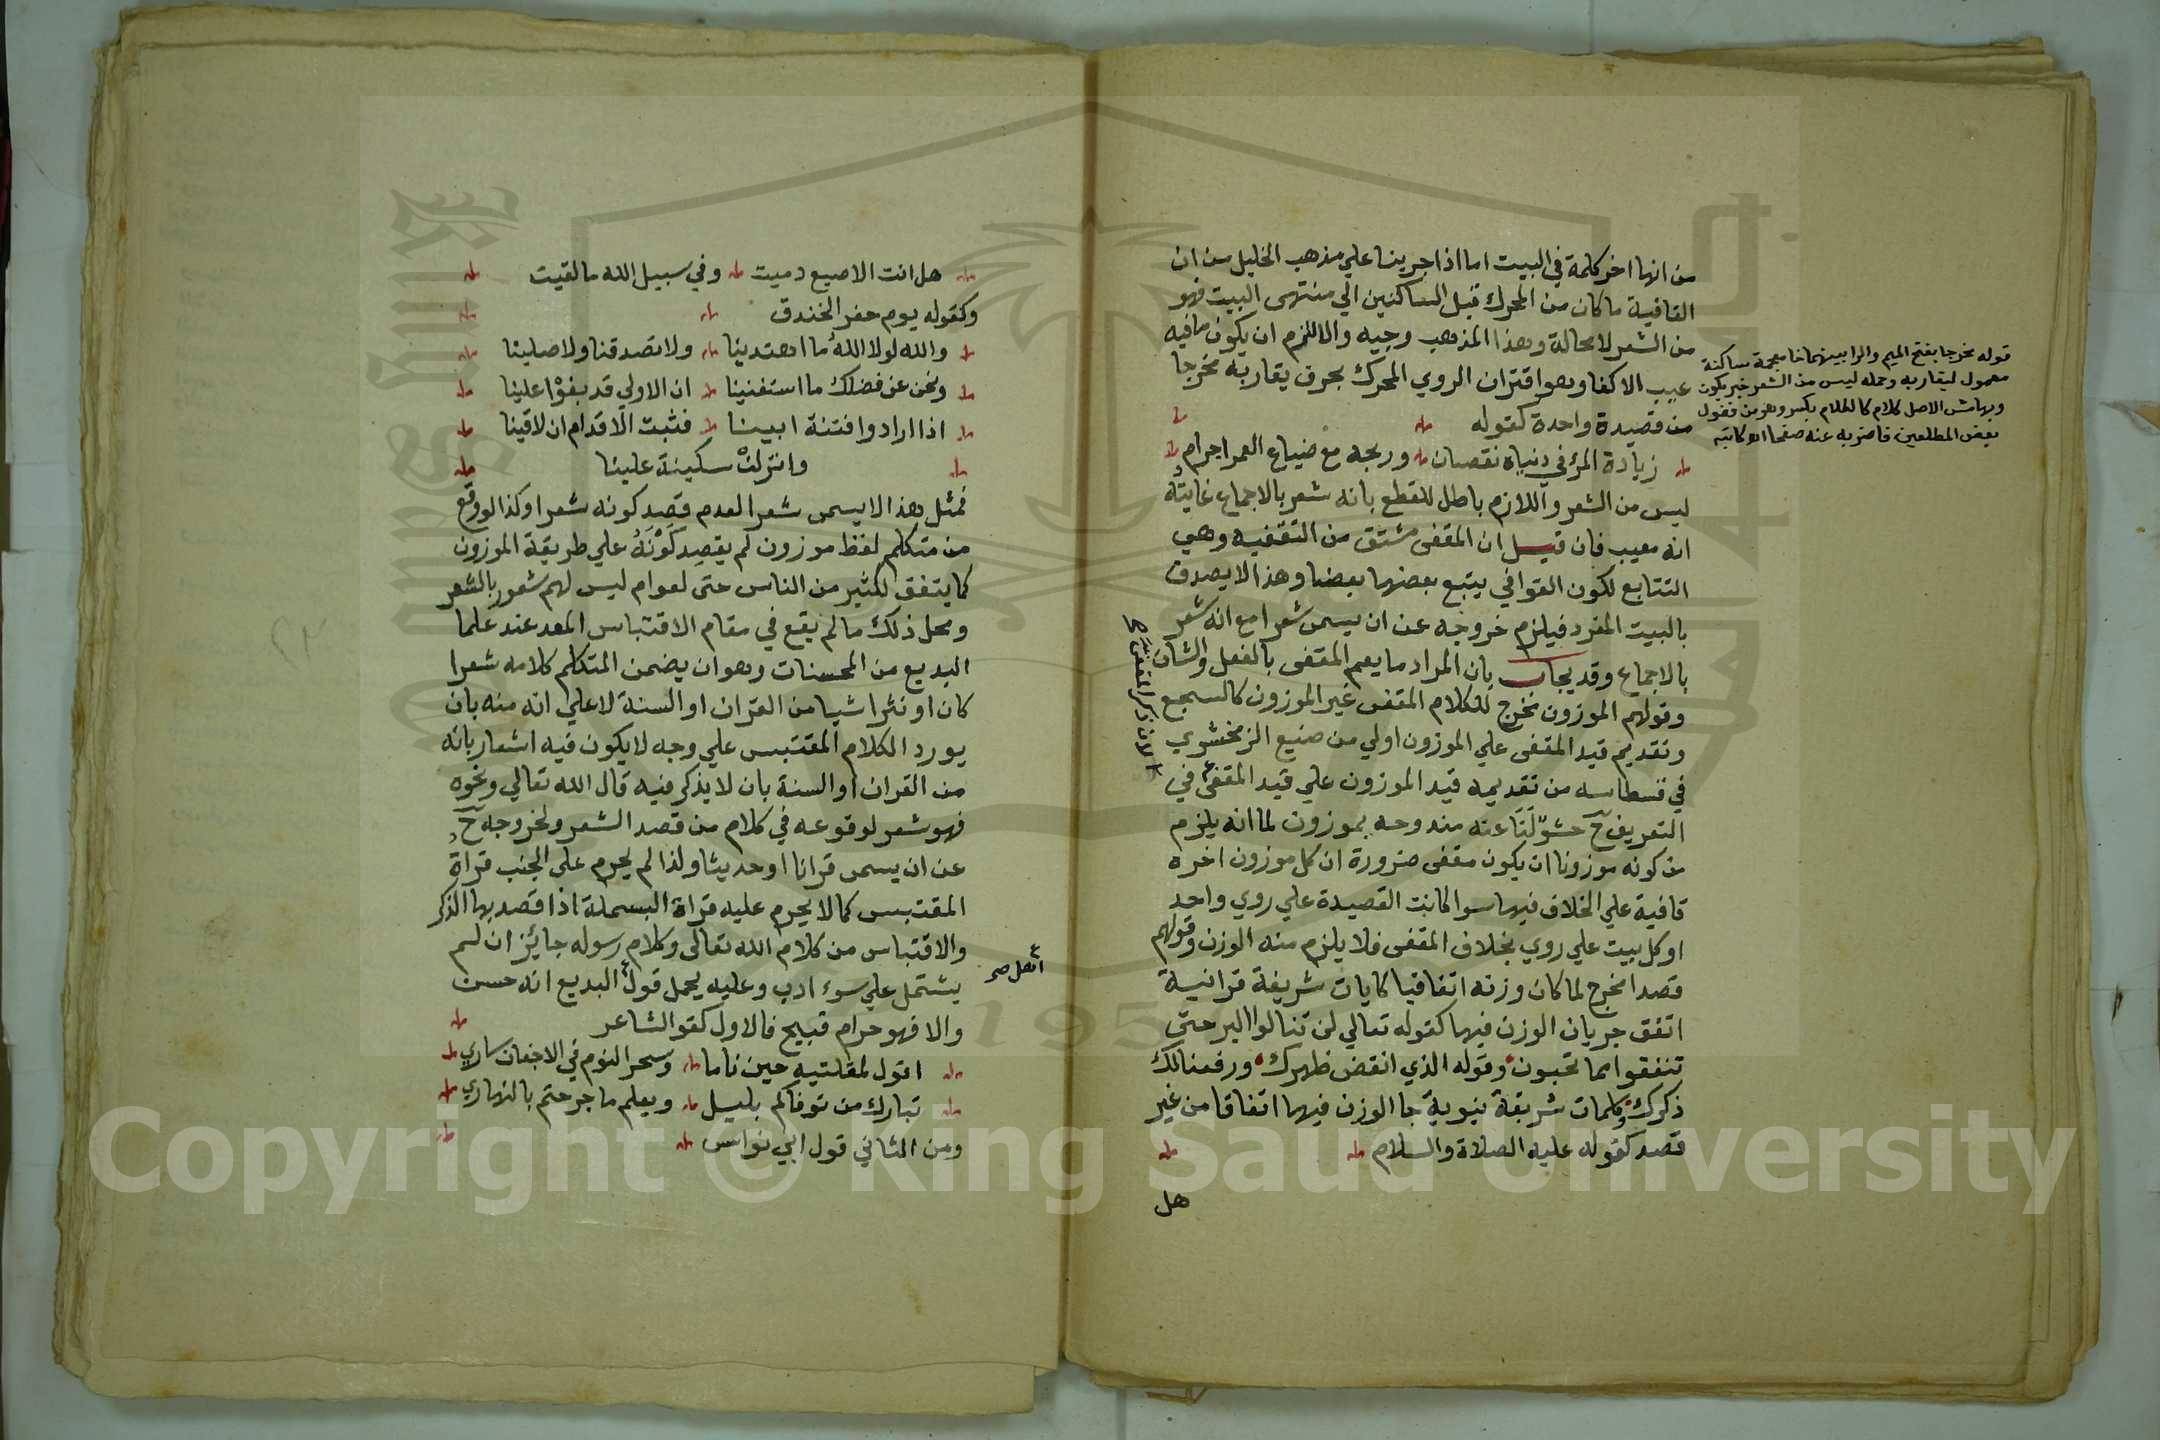 من انها اخر كلمة في البيت اما اذا جرينا علي مذهب الخليل من ان
القافية ما كان من المحرك قبل الساكنين الي منتهي البيت فهو
من الشعر لا محالة وهذا المذهب وجيه والا للزم ان يكون ما فيه
عيب الاكفا وهو اقتران الروي المحرك بحرف يقاربه مخرجا
من قصيدة واحدة كقوله
زيادة المرء في دنياه نقصان وربحه مع ضياع العمر اجرام
ليس من الشعر واللازم باطل للقطع بانه شعر بالاجماع غايته
انه معيب فان قيل ان المقفي مشتق من التقفيه وهي
التتابع لكون القوافي يتبع بعضها بعضا وهذا لا يصدق
بالبيت المفرد فيلزم خروجه عن ان يسمي شعرا مع انه شعر
بالاجماع وقد يجاب بان المراد ما يعم المقفي بالفعل والشان
وقولهم الموزون مخرج للكلام المقفي غير الموزون كالسجع
وتقديم قيد المقفي علي الموزون اولي من صنيع الزمخشري
في قسطاسه من تقديمه قيد الموزون علي قيد المقفي في
التعريف ح حشو لنا عنه مندوحه بموزون لما انه يلزم
من كونه موزونا ان يكون مقفي ضرورة ان كل موزون اخره
قافية علي الخلاف فيها سوا كانت القصيدة علي روي واحد
او كل بيت علي روي بخلاف المقفي فلا يلزم منه الوزن وقولهم
قصدا مخرج لما كان وزنه اتفاقيا كايات شريفة قرانية
اتفق جريان الوزن فيها كقوله تعالي لن تنالوا البر حتي
تنفقوا مما تحبون وقوله الذي انقض ظهرك ورفعنا لك
ذكرك وكلمات شريفة نبوية جا الوزن فيها اتفاقا من غير
قصد كقوله عليه الصلاة والسلام
هل
قوله مخرجا بفتح الميم والرا بينهما خا معجمة ساكنة
معمول ليقاربه وجمله ليس من الشعر خبر يكون
وبهامش الاصل كلام
بعض المطلعين فاضربه عنه صفحا اه كاتبه
لان ذكر المقفي
هل انت الا اصبع دميت وفي سبيل الله ما لقيت
وكقوله يوم حفر الخندق
والله لولا الله ما اهتدينا ولا تصدقنا ولا صلينا
ونحن عن فضلك ما استغنينا ان الاولي قد بغوا علينا
اذا ارادوا فتنة ابينا فثبت الاقدام ان لاقينا
وانزلن سكينة علينا
فمثل هذا لا يسمي شعرا لعدم قصد كونه شعرا وكذا لو وقع
من متكلم لفظ موزون لم يقصد كونه علي طريقة الموزون
كما يتفق لكثير من الناس حتي لعوام ليس لهم شعور بالشعر
ومحل ذلك ما لم يقع في مقام الاقتباس المعد عند علما
البديع من المحسنات وهو ان يضمن المتكلم كلامه شعرا
كان او نثرا شيا من القران او السنة لا علي انه منه بان
يورد الكلام المقتبس علي وجه لا يكون فيه اشعار بانه
من القران او السنة بان لا يذكر فيه قال الله تعالي ونحوه
فهو شعر لوقوعه في كلام من قصد الشعر ولخروجه ح
عن ان يسمي قرانا او حديثا ولذا لم يحرم علي الجنب قراة
المقتبس كما لا يحرم عليه قراة البسملة اذا قصد بها الذكر
والاقتباس من كلام الله تعالي وكلام رسوله جايز ان لم
يشتمل علي سوء ادب وعليه يحمل قول البديع انه حسن
والا فهو حرام قبيح فالاول كقو الشاعر
اقول لمقلتيه حين ناما وسحر النوم في الاجفان ساري
تبارك من توفاكم بليل ويعلم ما جرحتم بالنهاري
ومن الثاني قول ابي نواس
اهل صح